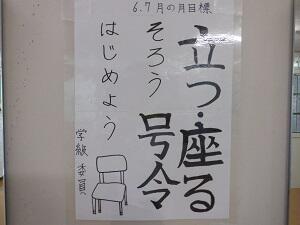 6.7月の月目標
立つ・座る
号令
そろう
はじめよう
学級委員